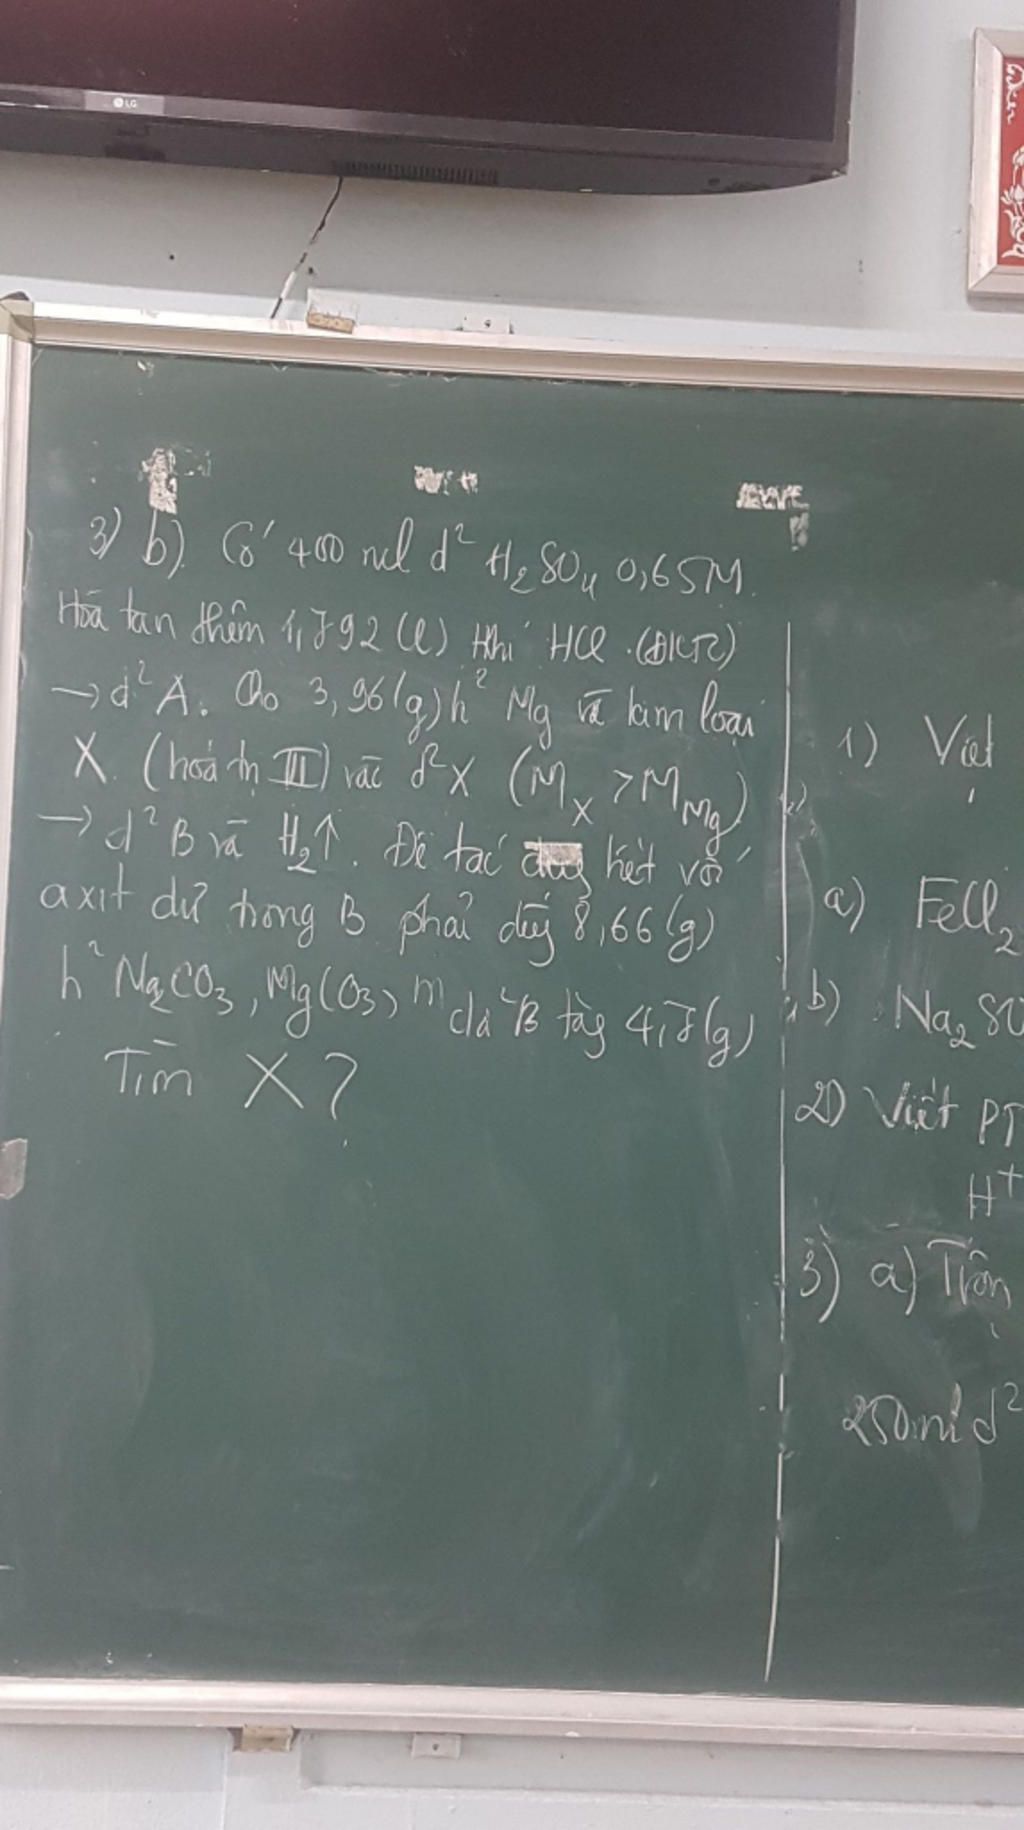 LG
3) b). Có 400 ml d² H₂SO₄ 0,65M.
Hòa tan thêm 1,792 (l) khí HCl. (ĐKTC)
→ d² A. Cho 3,96(g) h² Mg và kim loại
X. (hoá trị III) vào d² X (M_X > M_Mg)
→ d² B và H₂↑. Để tác dụng hết với
axit dư trong B phải dùng 8,66(g)
h² Na₂CO₃, MgCO₃, m của B tăng 4,7(g)
Tìm X?
1) Viết
a) FeCl₂
b) Na₂SO
2) Viết PT
H⁺
3) a) Trộn
250ml d²